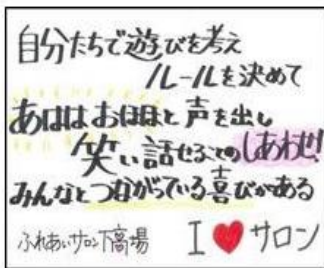 自分たちで遊びを考え
ルールを決めて
あははおほほと声を出し
笑い話せることのしあわせ!
みんなとつながっている喜びがある
ふれあいサロン下高場 I ♥ サロン